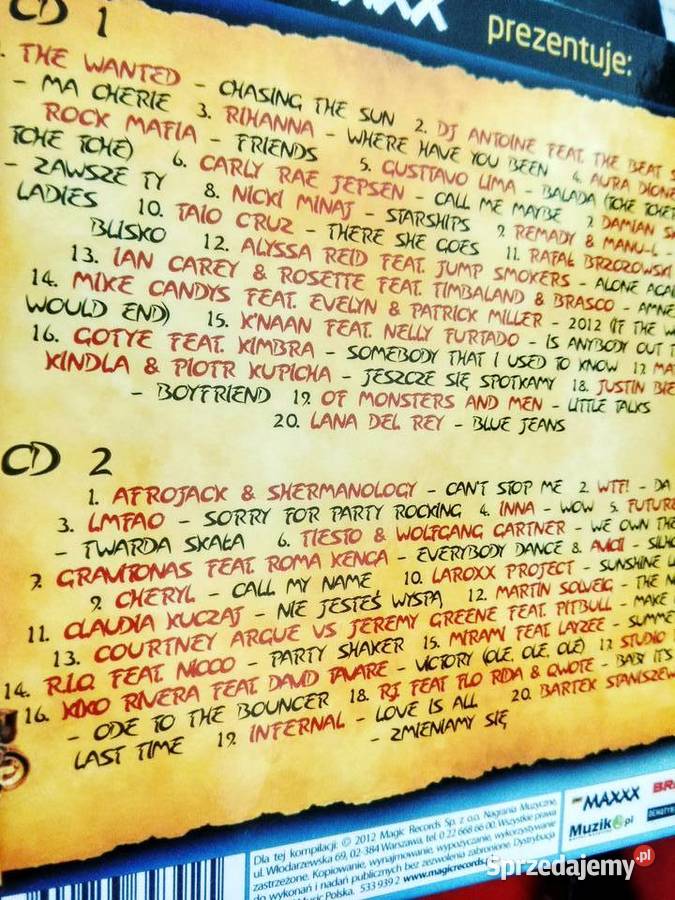 CD 1
MAXXX
prezentuje:
THE WANTED - CHASING THE SUN 2. DJ ANTOINE FEAT. THE BEAT
- MA CHERIE 3. RIHANNA - WHERE HAVE YOU BEEN 4. AURA DIONE
ROCK MAFIA - FRIENDS 5. GUSTTAVO LIMA - BALADA (TCHE TCHE
TCHE TCHE) 6. CARLY RAE JEPSEN - CALL ME MAYBE 7. DAMIAN
- ZAWSZE TY 8. NICKI MINAJ - STARSHIPS 9. REMADY & MANU-L -
LADIES 10. TAIO CRUZ - THERE SHE GOES 11. RAFAŁ BRZOZOWSKI
BLISKO 12. ALYSSA REID FEAT. JUMP SMOKERS - ALONE
13. IAN CAREY & ROSETTE FEAT. TIMBALAND & BRASCO -
14. MIKE CANDYS FEAT. EVELYN & PATRICK MILLER - 2012 (IF THE
WOULD END) 15. K'NAAN FEAT. NELLY FURTADO - IS ANYBODY OUT
16. GOTYE FEAT. KIMBRA - SOMEBODY THAT I USED TO KNOW 17.
KINDLA & PIOTR KUPICHA - JESZCZE SIĘ SPOTKAMY 18. JUSTIN
- BOYFRIEND 19. OF MONSTERS AND MEN - LITTLE TALKS
20. LANA DEL REY - BLUE JEANS
CD 2
1. AFROJACK & SHERMANOLOGY - CAN'T STOP ME 2. WTF! - DA
3. LMFAO - SORRY FOR PARTY ROCKING 4. INNA - WOW 5.
- TWARDA SKAŁA 6. TIESTO & WOLFGANG GARTNER - WE OWN THE
7. GRAVITONAS FEAT. ROMA KENGA - EVERYBODY DANCE 8. AVICII -
9. CHERYL - CALL MY NAME 10. LAROXX PROJECT - SUNSHINE
11. CLAUDIA KUCZAJ - NIE JESTEŚ WYSPĄ 12. MARTIN SOLVEIG - THE
13. COURTNEY ARGUE VS JEREMY GREENE FEAT. PITBULL - MAKE
14. R.I.O. FEAT. NICCO - PARTY SHAKER 15. MIRAMI FEAT. LAYZEE -
16. KIKO RIVERA FEAT. DAVID TAVARE - VICTORY (OLE, OLE, OLE) 17. STUDIO
- ODE TO THE BOUNCER 18. RJ FEAT FLO RIDA & QWOTE - BABY IT'S
LAST TIME 19. INFERNAL - LOVE IS ALL 20. BARTEK
- ZMIENIAMY SIĘ
Dla tej kompilacji: © 2012 Magic Records Sp. z o.o. Nagrania Muzyczne,
ul. Włodarzewska 69, 02 384 Warszawa, tel. 0 22 668 66 00. Wszystkie prawa
zastrzeżone. Kopiowanie, wynajmowanie, wypożyczanie, wykorzystywanie
do wykonań i nadań publicznych bez zezwolenia zabronione. Dystrybucja
Music Polska. 533 939 2 www.magicrecords.
MAXXX
Muzik pl
Sprzedajemy.pl